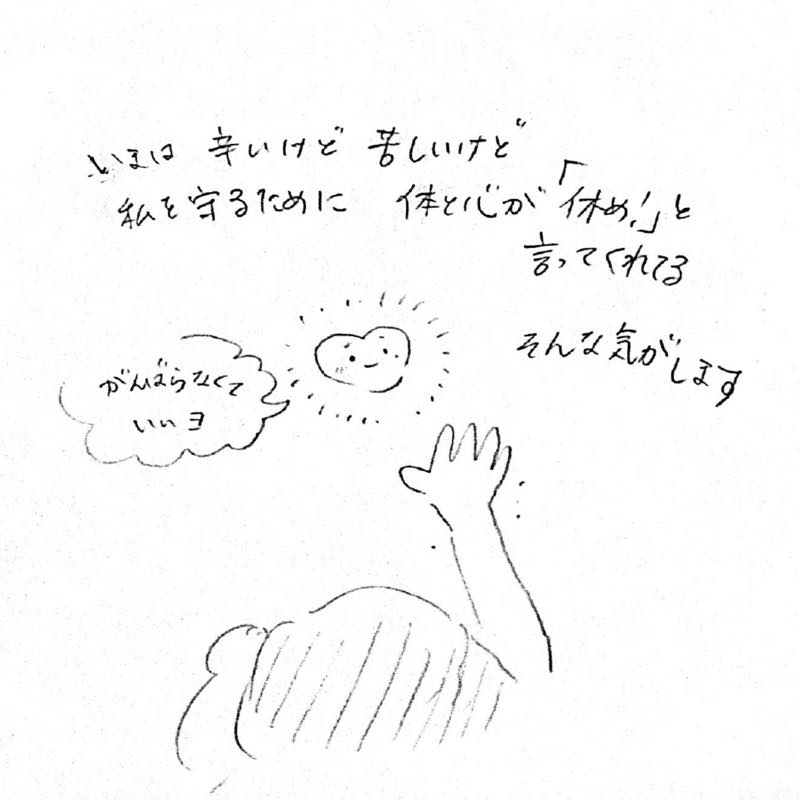 いまは 辛いけど 苦しいけど
私を守るために 体と心が「休め!」と
言ってくれてる
そんな気がします
がんばらなくて
いいヨ